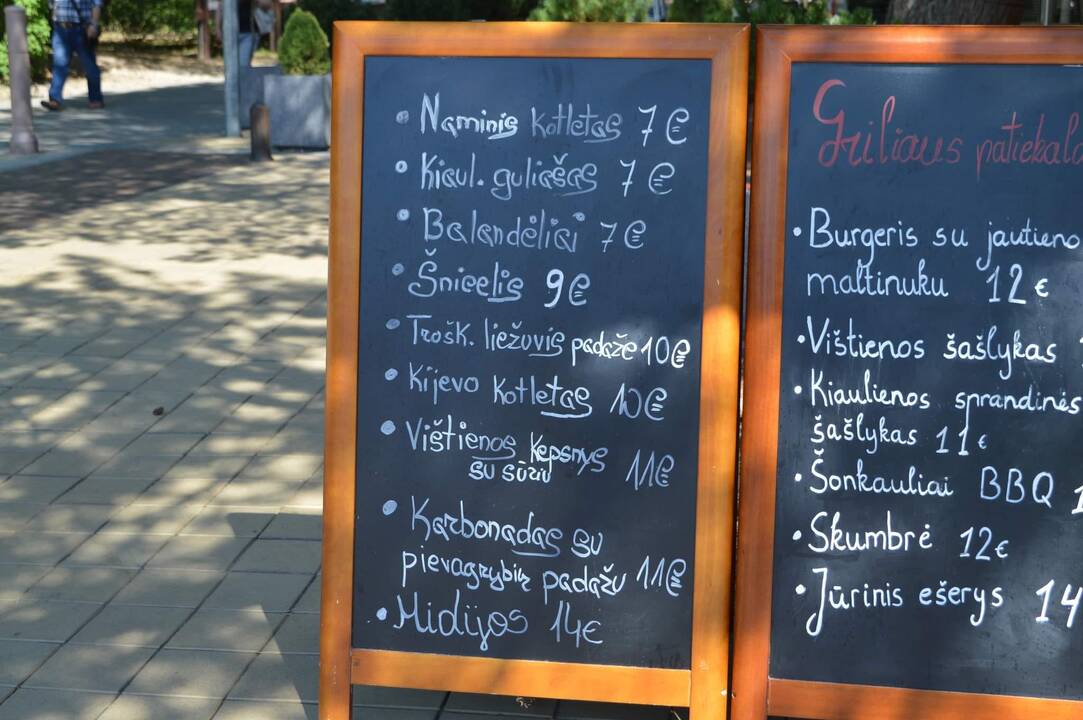 Naminis kotletas 7€
Kiaul. guliašas 7€
Balandėliai 7€
Šnicelis 9€
Trošk. liežuvis padaže 10€
Kijevo kotletas 10€
Vištienos kepsnys
su sūriu 11€
Karbonadas su
pievagrybių padažu 11€
Midijos 14€
Griliaus
Burgeris su jautieno
maltinuku 12€
Vištienos šašlykas
Kiaulienos sprandinės
šašlykas 11€
Šonkauliai BBQ
Skumbrė 12€
Jūrinis ešerys 14